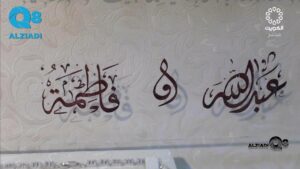 Q8
ALZIADI
الكويت
عبدالله و فاطمة
ALZIADI Q8